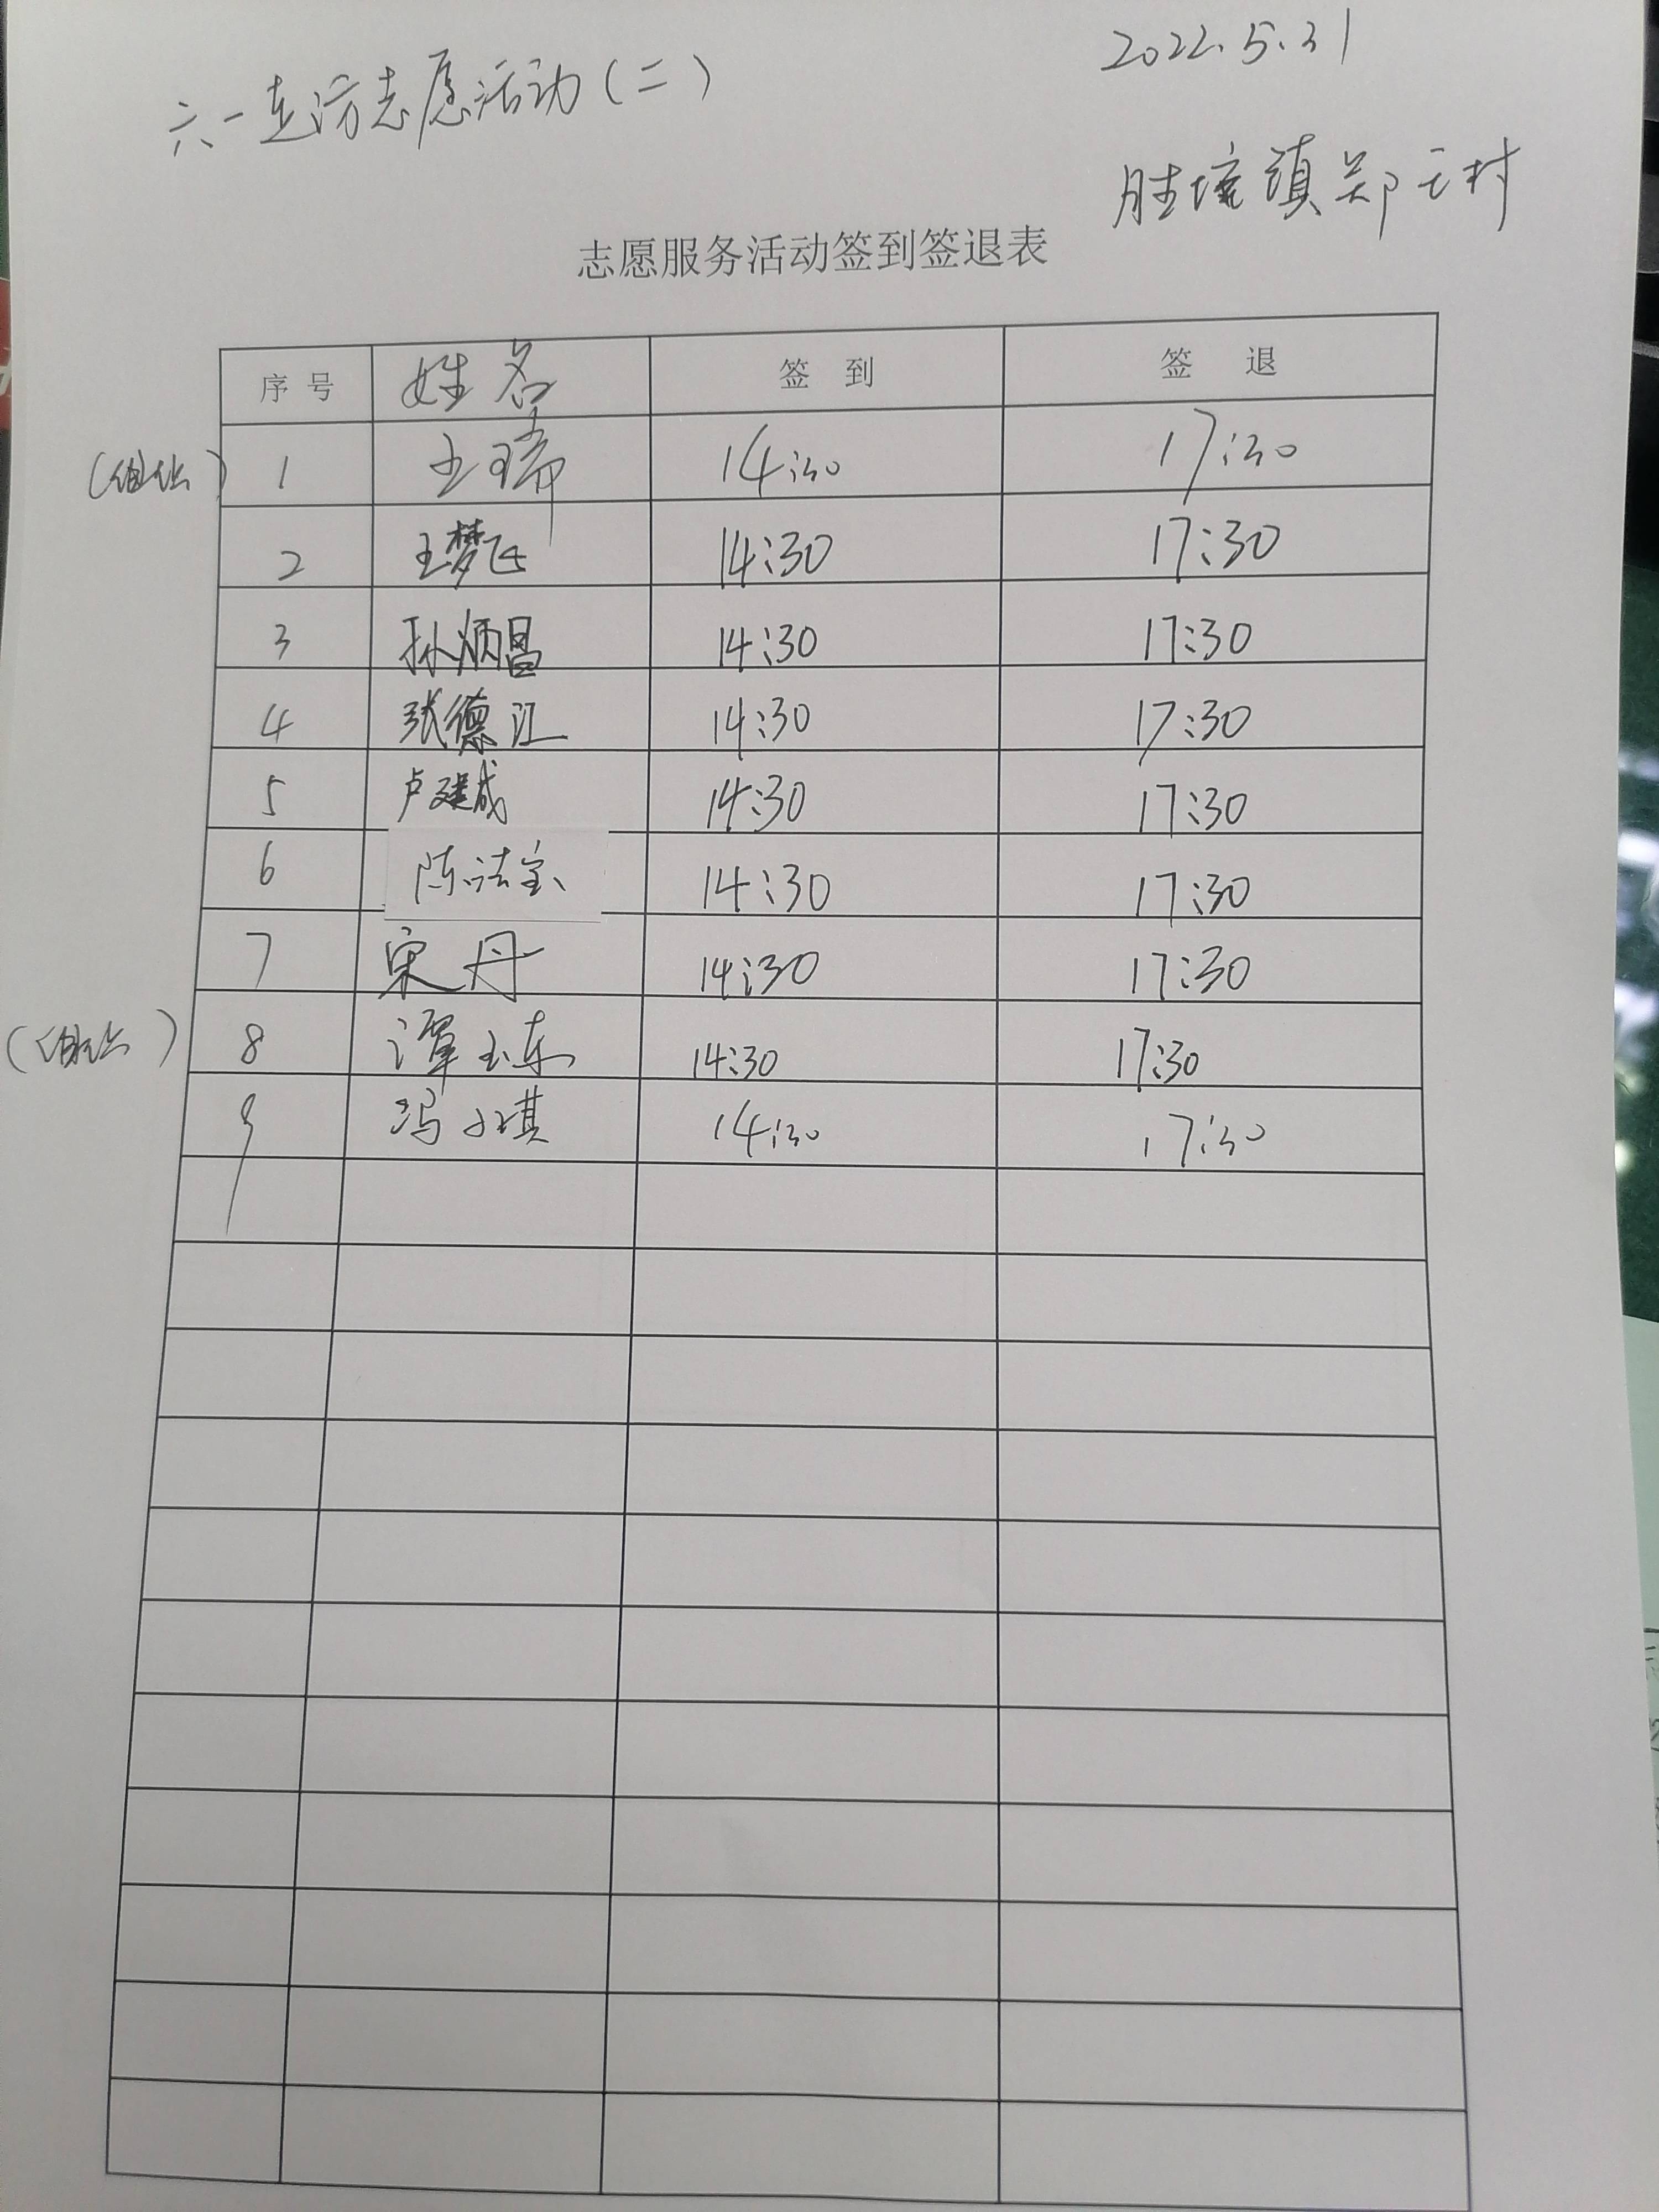 2022.5.31
六一走访志愿活动(二)
胜坨镇郑王村
志愿服务活动签到签退表
序号 姓名 签 到 签 退
1 王瑞 14:30 17:30
2 王梦飞 14:30 17:30
3 孙炳昌 14:30 17:30
4 张德江 14:30 17:30
5 卢建成 14:30 17:30
6 陈法宝 14:30 17:30
7 宋丹 14:30 17:30
8 谭玉东 14:30 17:30
9 冯小琪 14:30 17:30